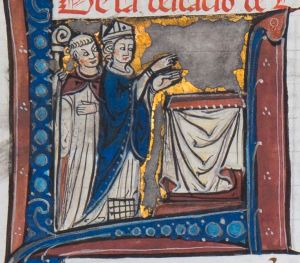 De la dedicacio de